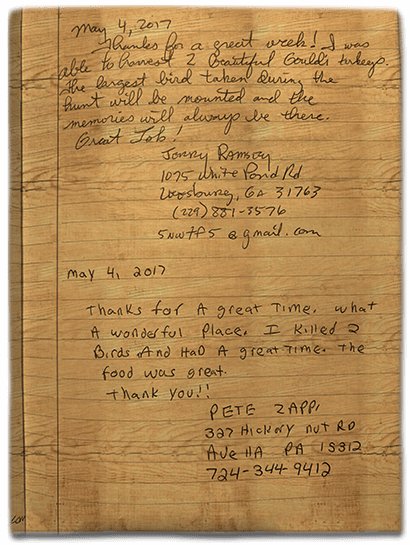 May 4, 2017
Thanks for a great week! I was
able to harvest 2 beautiful Gould's turkeys.
The largest bird taken during the
hunt will be mounted and the
memories will always be there.
Great Job!
Jerry Ramsey
1075 White Pond Rd
GA 31763
(229) 881-3576
@gmail.com
May 4, 2017
Thanks for A great Time. What
A wonderful Place. I Killed 2
Birds And HaD A great Time. The
food was great.
Thank You!!
PETE ZAPPI
327 Hickory nut RD
Avella PA 15312
724-344-9412